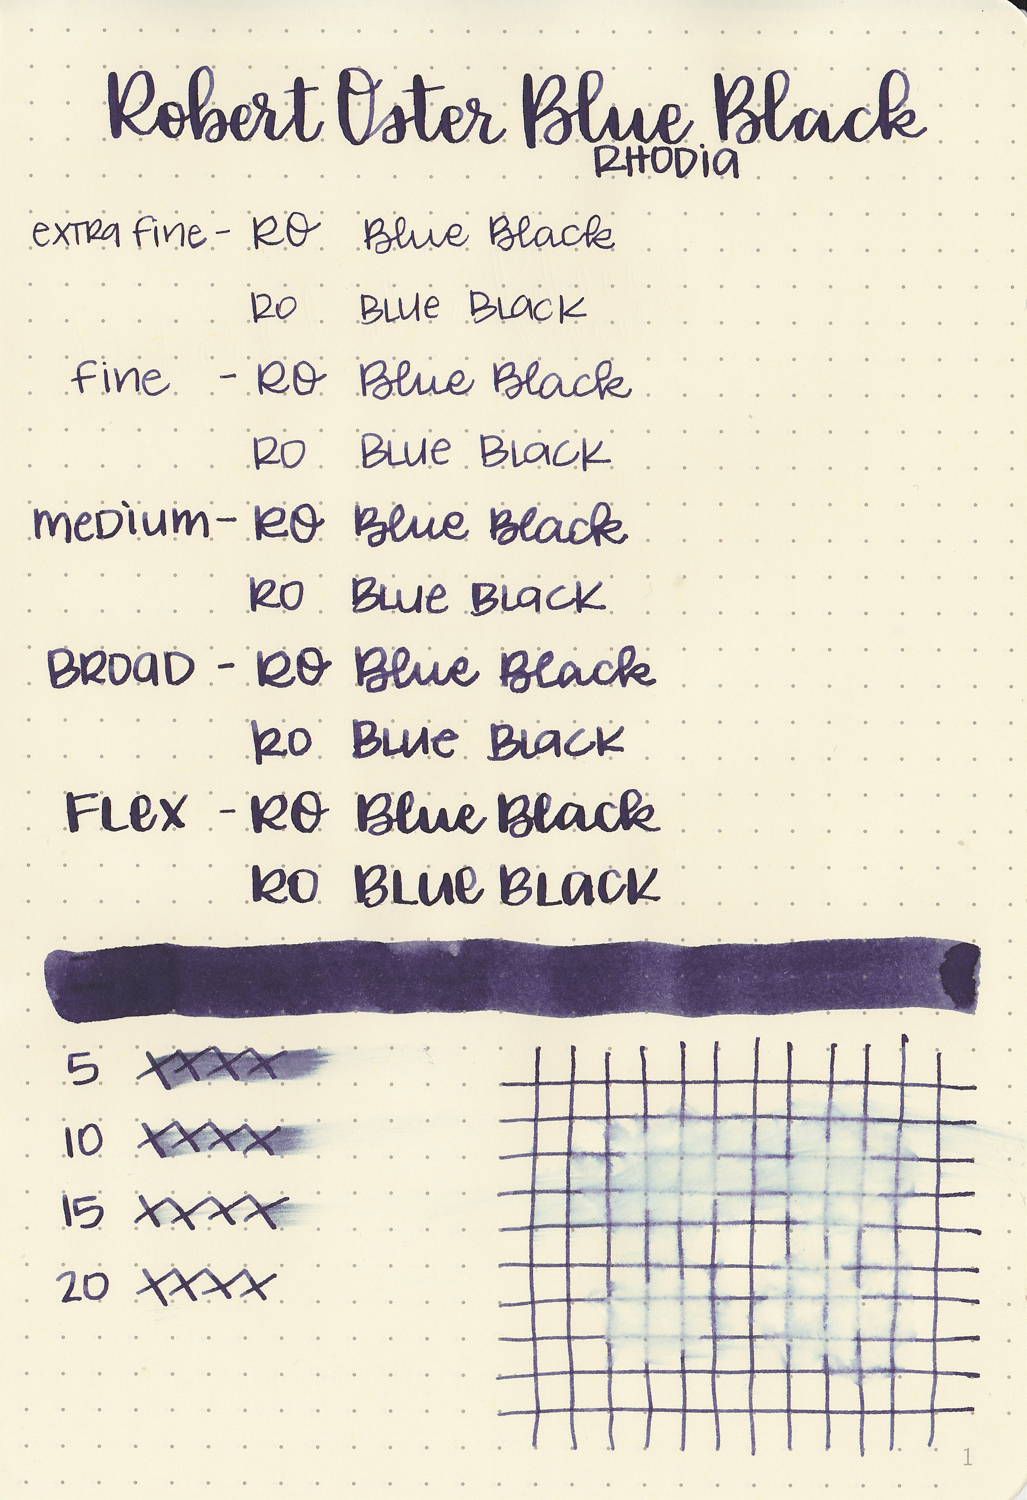 Robert Oster Blue Black
RHODIA
extra fine - RO Blue Black
RO Blue Black
fine - RO Blue Black
RO Blue Black
medium - RO Blue Black
RO Blue Black
BROAD - RO Blue Black
RO Blue Black
FLEX - RO Blue Black
RO BLUE BLACK
5 XXXX
10 XXXX
15 XXXX
20 XXXX
1